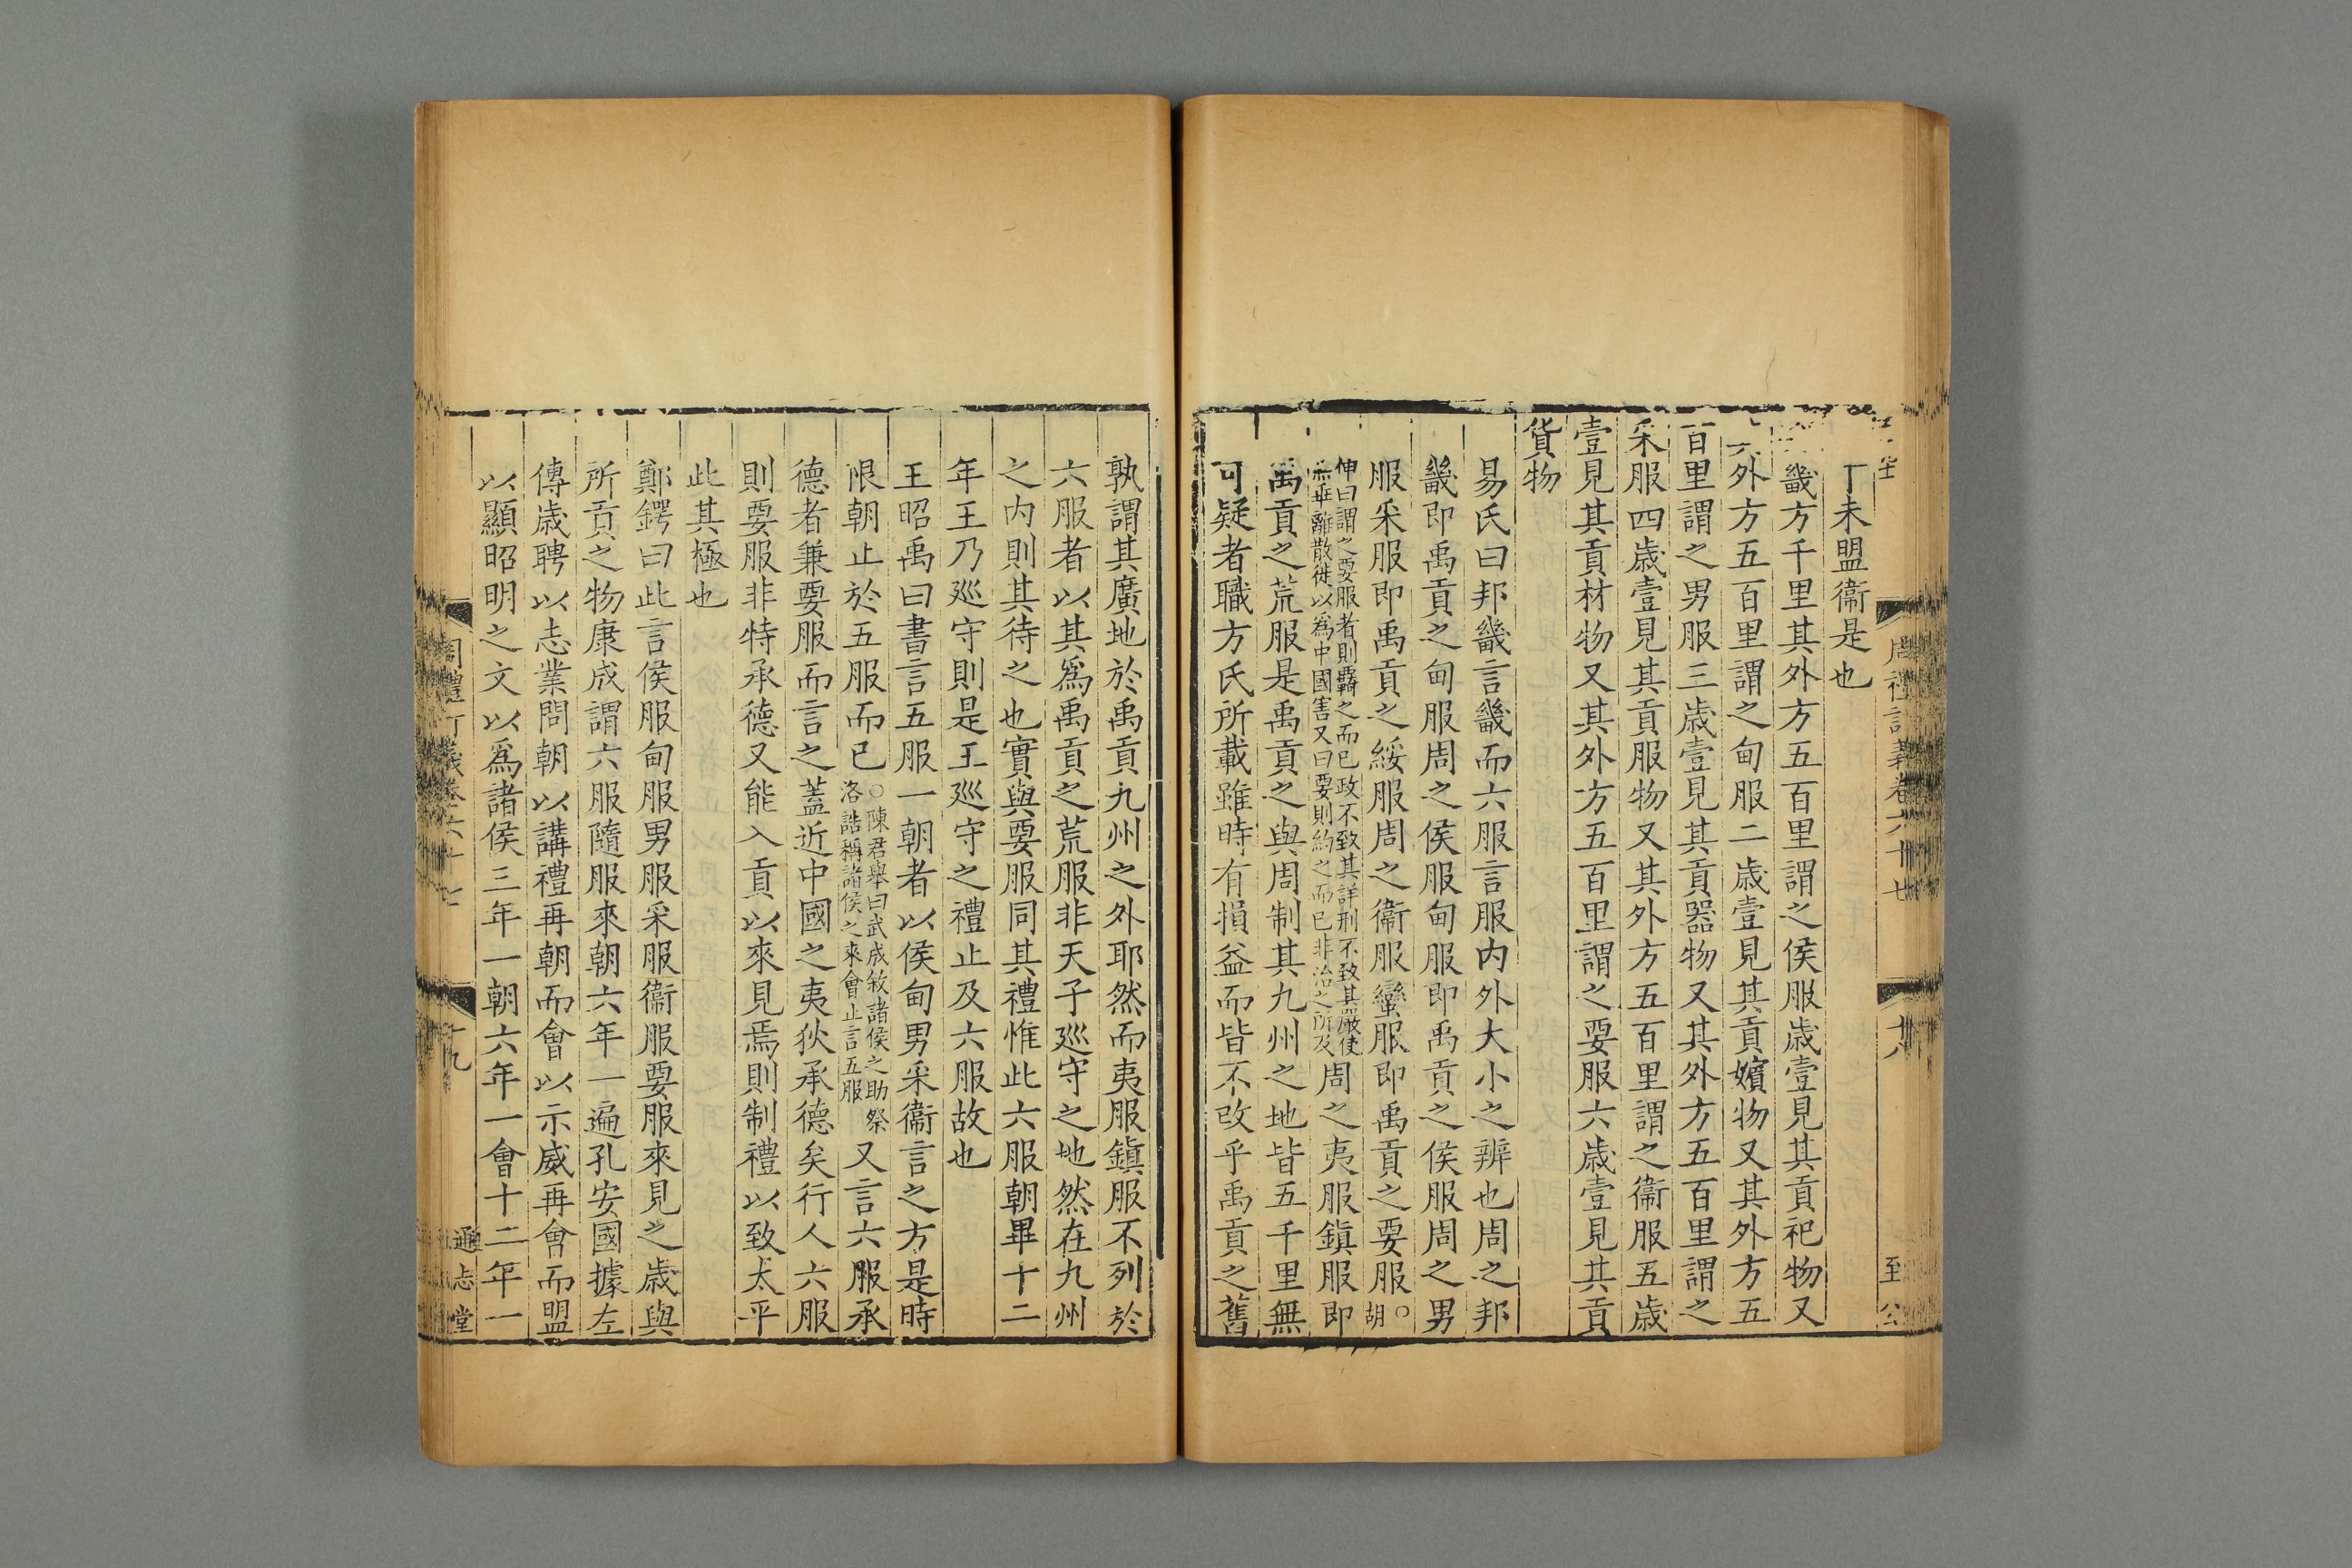 周禮訂義卷六十七
十八
至公
丁未盟衞是也
畿方千里其外方五百里謂之侯服歲壹見其貢祀物又
外方五百里謂之甸服二歲壹見其貢嬪物又其外方五
百里謂之男服三歲壹見其貢器物又其外方五百里謂之
采服四歲壹見其貢服物又其外方五百里謂之衞服五歲
壹見其貢材物又其外方五百里謂之要服六歲壹見其貢
貨物
易氏曰邦畿言畿而六服言服内外大小之辨也周之邦
畿即禹貢之甸服周之侯服甸服即禹貢之侯服周之男
服采服即禹貢之綏服周之衞服蠻服即禹貢之要服○胡
伸曰謂之要服者則羈之而已政不致其詳刑不致其嚴使
乖離散徙以爲中國害又曰要則約之而已非治之所及周之夷服鎮服即
禹貢之荒服是禹貢之與周制其九州之地皆五千里無
可疑者職方氏所載雖時有損益而皆不改乎禹貢之舊
孰謂其廣地於禹貢九州之外耶然而夷服鎮服不列於
六服者以其爲禹貢之荒服非天子巡守之地然在九州
之内則其待之也實與要服同其禮惟此六服朝畢十二
年王乃巡守則是王巡守之禮止及六服故也
王昭禹曰書言五服一朝者以侯甸男采衞言之方是時
限朝止於五服而已○陳君舉曰武成敘諸侯之助祭
洛誥稱諸侯之來會止言五服又言六服承
德者兼要服而言之蓋近中國之夷狄承德矣行人六服
則要服非特承德又能入貢以來見焉則制禮以致太平
此其極也
鄭鍔曰此言侯服甸服男服采服衞服要服來見之歲與
所貢之物康成謂六服隨服來朝六年一遍孔安國據左
傳歲聘以志業問朝以講禮再朝而會以示威再會而盟
以顯昭明之文以爲諸侯三年一朝六年一會十二年一
周禮訂義卷六十七
十九
通志堂